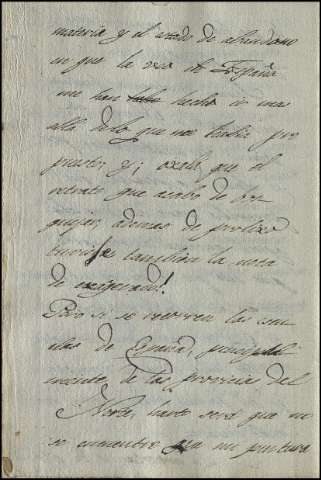 materia y el estado de abandono
en que la veo en España
me han hecho ir mas
alla de lo que me habia pro
puesto; y ¡oxalá que el
retrato que acabo de bos
quejar, ademas de prolixo
tuviese tambien la nota
de exigerado!
Pero si se recorren las escu
elas de España, principal
mente, de las provincias del
Norte, harto será que no
se encuentre en mi pintura